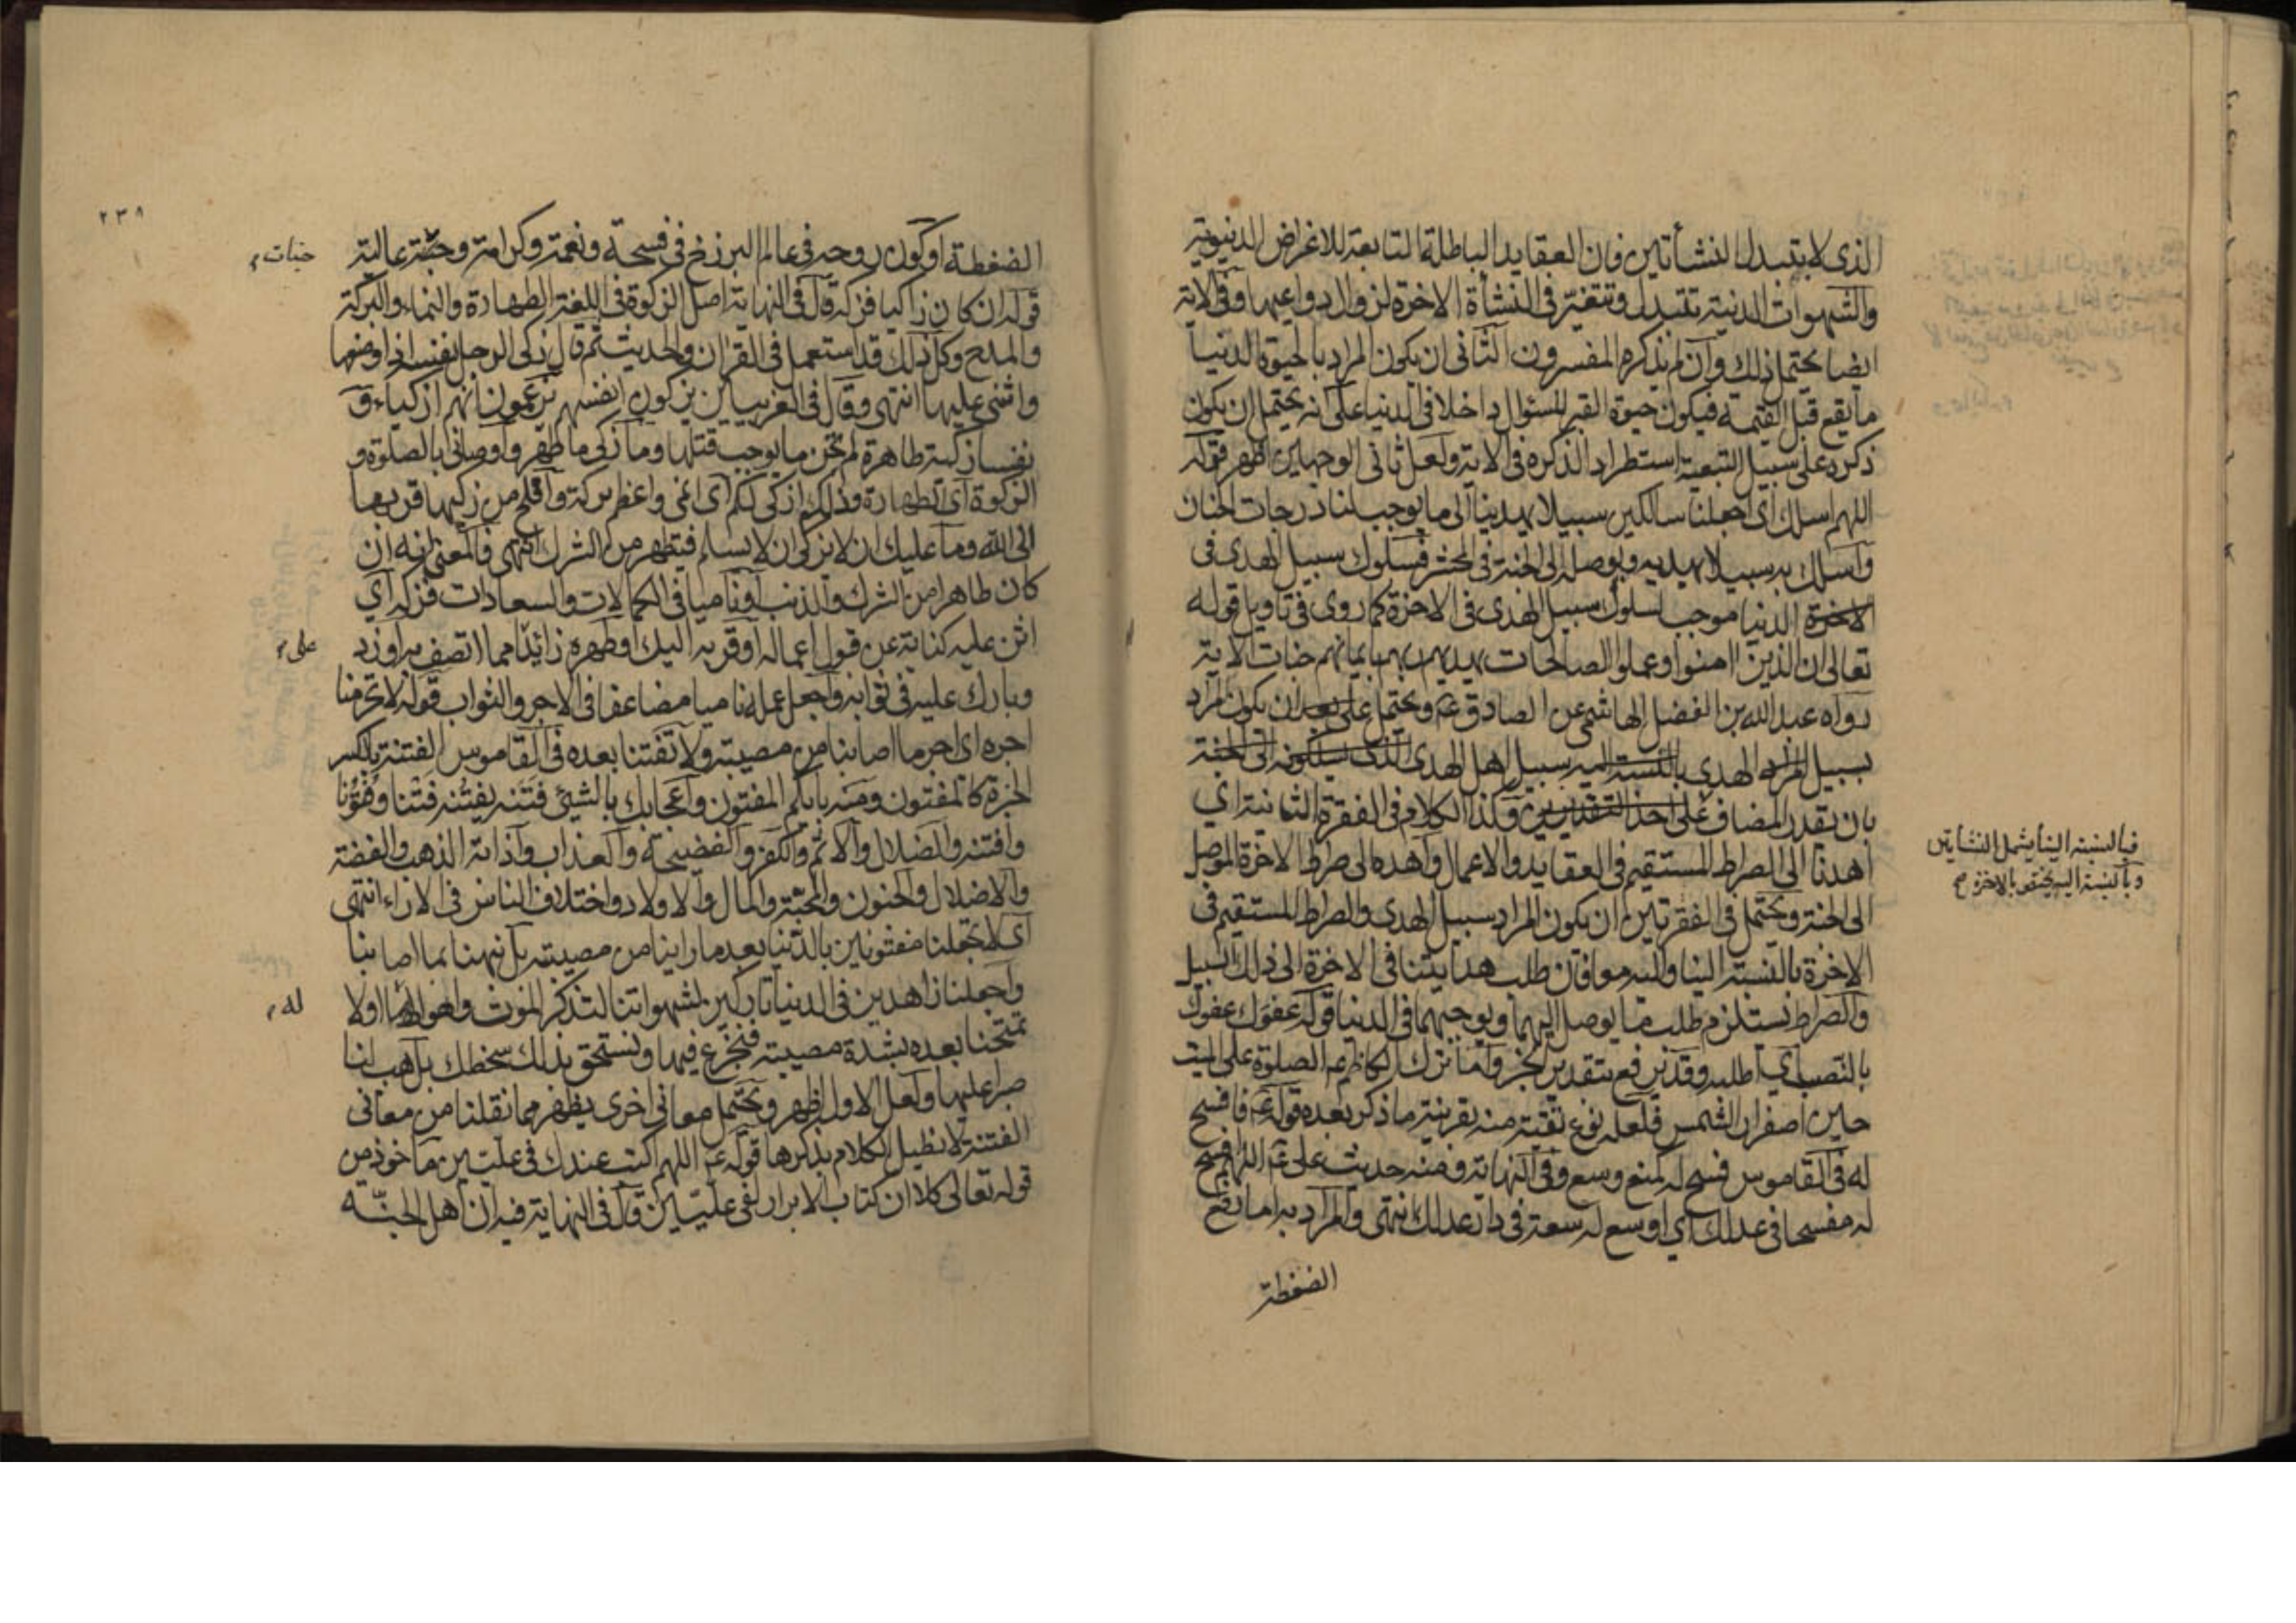 الذى لا يتبدل النشأتين فان العقايد الباطلة التابعة للاغراض الدنيوية
والشهوات الدنية تتبدل وتتغير فى النشأة الاخرة لزوال دواعيها وفى الاية
ايضا يحتمل ذلك وان لم يذكره المفسرون الثانى ان يكون المراد بالحيوة الدنيا
ما يقع قبل القيمة فيكون حيوة القبر للسؤال داخلا فى الدنيا على انه يحتمل ان يكون
ذكره على سبيل التبعية استطرادا لذكره فى الاية ولعل ثانى الوجهين اظهر قوله
اللهم اسلك اى اجعلنا سالكين سبيلا يهدينا الى ما يوجب لنا درجات الجنان
واسلك به سبيلا يهديه ويوصله الى الجنة فى المحشر فسلوك سبيل الهدى فى
الاخرة الدنيا موجب لسلوك سبيل الهدى فى الاخرة كما روى فى تاويل قوله
تعالى ان الذين امنوا وعملوا الصالحات يهديهم ربهم بايمانهم جنات الاية
رواه عبد الله بن الفضل الهاشمى عن الصادق ع ويحتمل على بعد ان يكون المراد
بسبيل الهدى بالنسبة اليه سبيل اهل الهدى الذى سلكوه الى الجنة
بان يقدر المضاف على احد التقديرين وكذا الكلام فى الفقرة الثانية اى
فبالنسبة الينا يشمل النشأتين
وبالنسبة اليه يختص بالاخرة صح
اهدنا الى الصراط المستقيم فى العقايد والاعمال واهده الى صراط الاخرة الموصل
الى الجنة ويحتمل فى الفقرتين ان يكون المراد سبيل الهدى والصراط المستقيم فى
الاخرة بالنسبة الينا واليه معا فان طلب هدايتنا فى الاخرة الى ذلك السبيل
والصراط تستلزم طلب ما يوصل اليهما ويوجبهما فى الدنيا قوله عفوك عفوك
بالنصب اى اطلبه وقد يرفع بتقدير الخبر واما ترك الكاظم ع الصلوة على الميت
حين اصفرار الشمس فلعله نوع تقية منه بقرينة ما ذكر بعده قوله ع فافسح
له فى القاموس فسح له كمنع وسع وفى النهاية ومنه حديث على ع اللهم افسح
له مفسحا فى عدلك اى اوسع له سعة فى دار عدلك انتهى والمراد به اما رفع
الضغطة
٢٣٨
الضغطة او كون روحه فى عالم البرزخ فى فسحة ونعمة وكرامة وجنة عالية
جنات
قوله ان كان زاكيا فزكه قال فى النهاية اصل الزكوة فى اللغة الطهارة والنماء والبركة
والمدح وكل ذلك قد استعمل فى القران والحديث ثم قال زكى الرجل نفسه اذا وصفها
واثنى عليها انتهى وقال فى الغريبين يزكون انفسهم يزعمون انهم ازكياء و
نفسا زكية طاهرة لم تجن ما يوجب قتلها وما زكى ما طهر واوصانى بالصلوة و
الزكوة اى الطهارة وذلكم ازكى لكم اى انمى واعظم بركة وافلح من زكيها قربها
الى الله وما عليك ان لا يزكى ان لا يسلم فيتطهر من الشرك انتهى فالمعنى انه ان
كان طاهرا من الشرك والذنب او ناميا فى الكمالات والسعادات فزكه اى
اثن عليه كناية عن قبول اعماله او قربه اليك او طهره زائدا مما اتصف به او زد
على
وبارك عليه فى ثوابه واجعل عمله ناميا مضاعفا فى الاجر والثواب قوله لا تحرمنا
اجره اى اجر ما اصابنا من مصيبته ولا تفتنا بعده فى القاموس الفتنة بالكسر
الخبرة كالمفتون ومنه بايكم المفتون واعجابك بالشئ فتنه يفتنه فتنا وفتونا
وافتنه والضلال والاثم والكفر والفضيحة والعذاب واذابة الذهب والفضة
والاضلال والجنون والمحنة والمال والاولاد واختلاف الناس فى الاراء انتهى
اى لا تجعلنا مفتونين بالدنيا بعد ما راينا من مصيبته بل نبهنا بما اصابنا
واجعلنا زاهدين فى الدنيا تاركين لشهواتنا لتذكر الموت واهواله اولا
له
تمتحنا بعده بشدة مصيبته فنجزع فيها ونستحق بذلك سخطك بل هب لنا
صبرا عليها ولعل الاول اظهر ويحتمل معانى اخرى يظهر مما نقلنا من معانى
الفتنة لا نطيل الكلام بذكرها قوله ع اللهم اكتبه عندك فى عليين ماخوذ من
قوله تعالى كلا ان كتاب الابرار لفى عليين قال فى النهاية فيه ان اهل الجنة